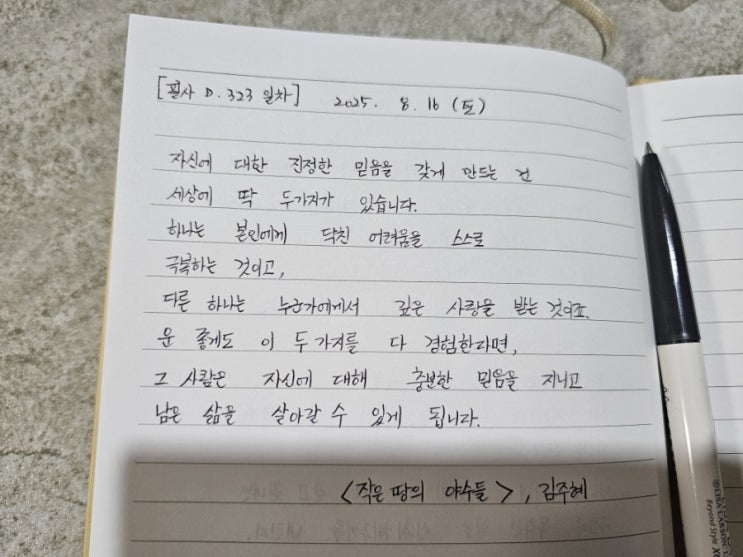 [필사 D.323 일차] 2025. 8.16 (토)
자신에 대한 진정한 믿음을 갖게 만드는 건
세상에 딱 두가지가 있습니다.
하나는 본인에게 닥친 어려움을 스스로
극복하는 것이고,
다른 하나는 누군가에게서 깊은 사랑을 받는 것이죠.
운 좋게도 이 두가지를 다 경험한다면,
그 사람은 자신에 대해 충분한 믿음을 지니고
남은 삶을 살아갈 수 있게 됩니다.
<작은 땅의 야수들>, 김주혜
©LISA LARSON
Beyond Style